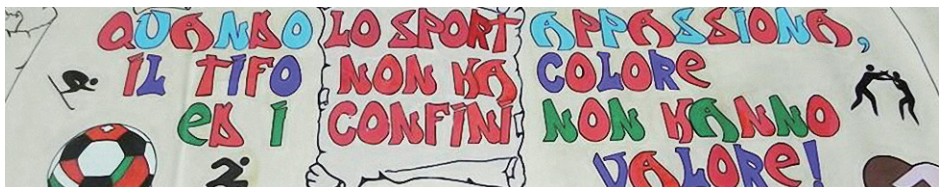 QUANDO LO SPORT APPASSIONA,
IL TIFO NON HA COLORE
ED I CONFINI NON HANNO
VALORE!